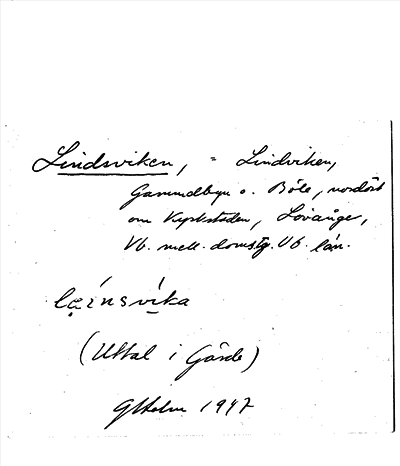 Lindsviken, = Lindviken,
Gammelbyn o. Böle, nordöst
om Kyrkstaden, Lövånger,
Vb. mell. domsg. Vb. län.
læ̣ínsvíka
(Uttal i Gärde)
GHolm 1947